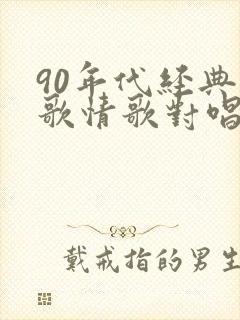 90年代经典
歌情歌對唱
戴戒指的男生